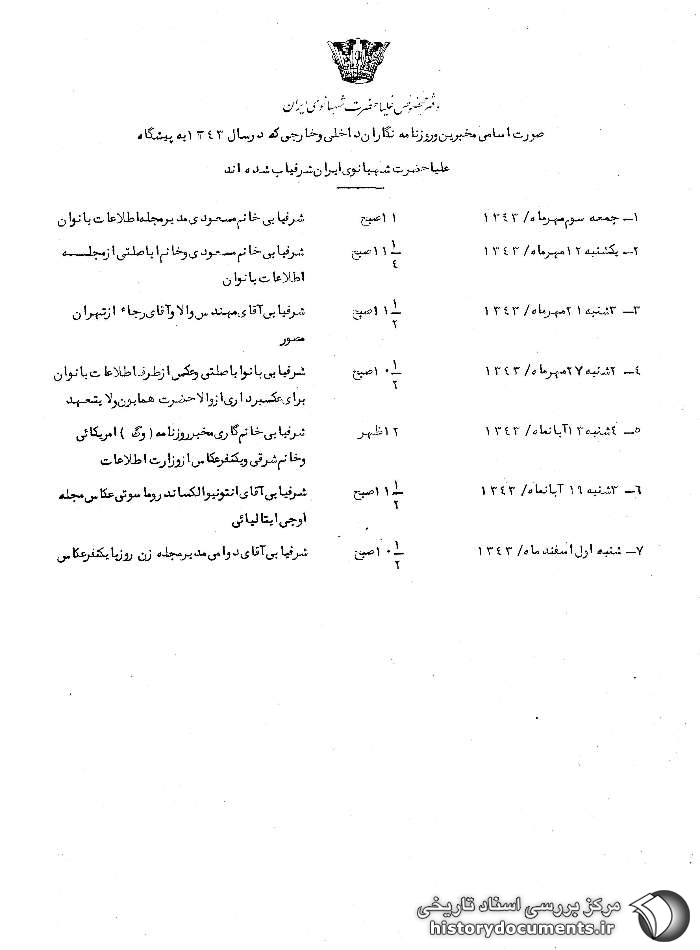 دفتر مخصوص علیاحضرت شهبانوی ایران
صورت اسامی مخبرین وروزنامه نگاران داخلی وخارجی که درسال ۱۳۴۳ به پیشگاه
علیاحضرت شهبانوی ایران شرفیاب شده اند
۱ـ جمعه سوم مهرماه/ ۱۳۴۳ ۱۱ صبح شرفیابی خانم مسعودی مدیرمجله اطلاعات بانوان
۲ـ یکشنبه ۱۲ مهرماه/ ۱۳۴۳ ۱۱ ۱/۴ صبح شرفیابی خانم مسعودی وخانم اباصلتی ازمجلــه
اطلاعات بانوان
۳ـ ۳شنبه ۲۱ مهرماه/ ۱۳۴۳ ۱۱ ۱/۲ صبح شرفیابی آقای مهندس والا وآقای رجاء ازتهران
مصور
۴ـ ۲شنبه ۲۷ مهرماه/ ۱۳۴۳ ۱۰ ۱/۲ صبح شرفیابی بانواباصلتی وعکس ازطرف اطلاعات بانوان
برای عکسبرداری ازوالاحضرت همایون ولایتعهد
۵ـ ۴شنبه ۱۳ آبانماه/ ۱۳۴۳ ۱۲ ظهر شرفیابی خانم گاری مخبرروزنامه (وگ) امریکائی
وخانم شرقی ویکنفرعکاس ازوزارت اطلاعات
۶ـ ۳شنبه ۱۹ آبانماه/ ۱۳۴۳ ۱۱ ۱/۲ صبح شرفیابی آقای انتونیوالکساندروماسوتی عکاس مجله
اوجی ایتالیائی
۷ـ شنبه اول اسفندماه/ ۱۳۴۳ ۱۰ ۱/۲ صبح شرفیابی آقای دوامی مدیرمجله زن روزبایکنفرعکاس
مرکز بررسی اسناد تاریخی
historydocuments.ir